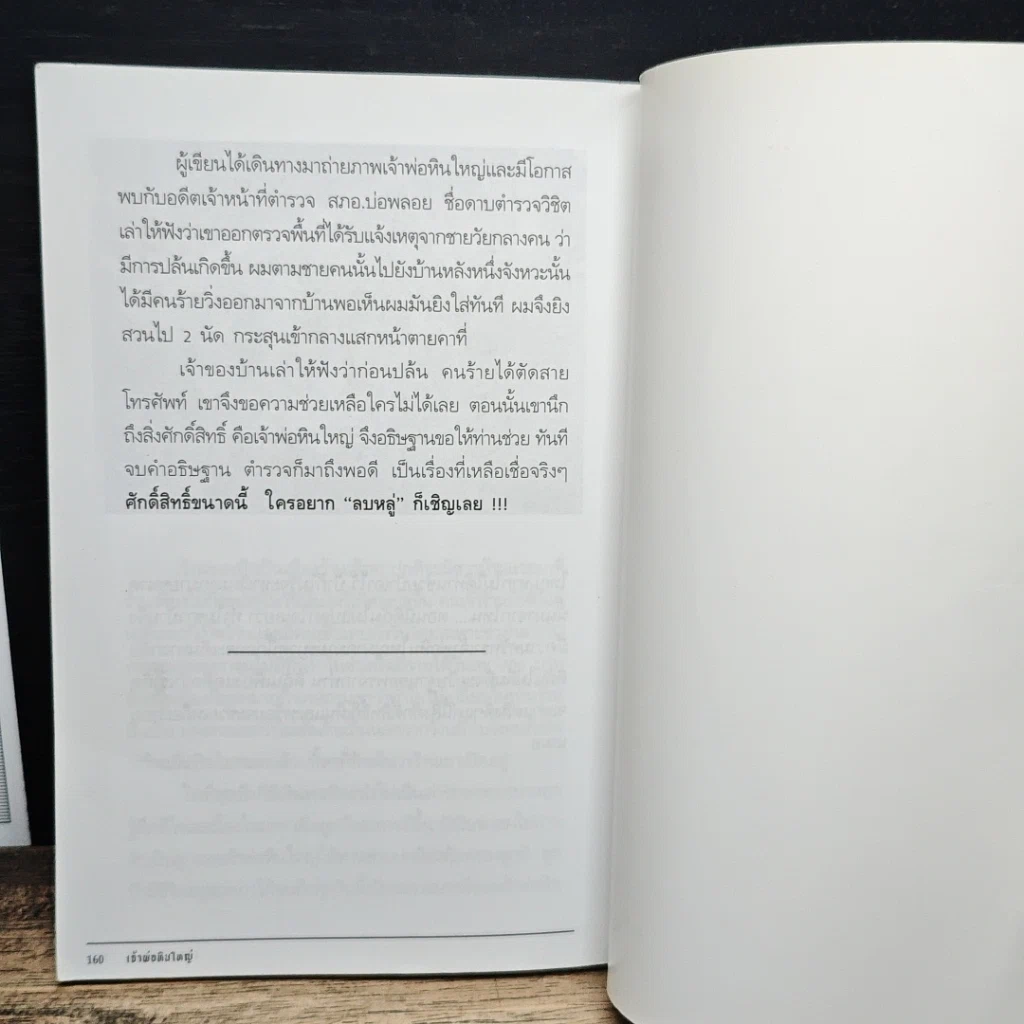 ผู้เขียนได้เดินทางมาถ่ายภาพเจ้าพ่อหินใหญ่และมีโอกาส
พบกับอดีตเจ้าหน้าที่ตำรวจ สภอ.บ่อพลอย ชื่อดาบตำรวจวิชิต
เล่าให้ฟังว่าเขาออกตรวจพื้นที่ได้รับแจ้งเหตุจากชายวัยกลางคน ว่า
มีการปล้นเกิดขึ้น ผมตามชายคนนั้นไปยังบ้านหลังหนึ่งจังหวะนั้น
ได้มีคนร้ายวิ่งออกมาจากบ้านพอเห็นผมมันยิงใส่ทันที ผมจึงยิง
สวนไป 2 นัด กระสุนเข้ากลางแสกหน้าตายคาที่
เจ้าของบ้านเล่าให้ฟังว่าก่อนปล้น คนร้ายได้ตัดสาย
โทรศัพท์ เขาจึงขอความช่วยเหลือใครไม่ได้เลย ตอนนั้นเขานึก
ถึงสิ่งศักดิ์สิทธิ์ คือเจ้าพ่อหินใหญ่ จึงอธิษฐานขอให้ท่านช่วย ทันที
จบคำอธิษฐาน ตำรวจก็มาถึงพอดี เป็นเรื่องที่เหลือเชื่อจริงๆ
ศักดิ์สิทธิ์ขนาดนี้ ใครอยาก “ลบหลู่” ก็เชิญเลย !!!
160 เจ้าพ่อหินใหญ่